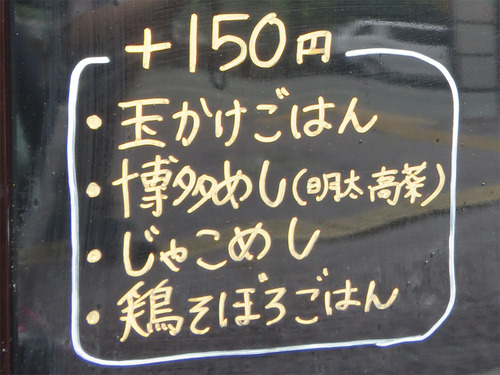 +150円
・玉かけごはん
・博多めし(明太高菜)
・じゃこめし
・鶏そぼろごはん